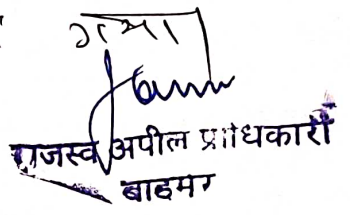 गया
राजस्व अपील प्राधिकारी
बाडमेर